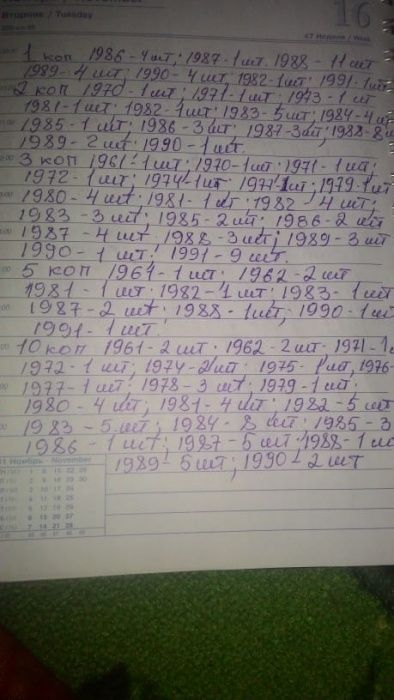 Вторник / Tuesday
16
47 Неделя / Week
1 коп 1986-4шт; 1987-1шт. 1988-11шт
1989-4шт; 1990-4шт; 1982-1шт; 1991-1шт
2 коп 1970-1шт; 1971-1шт; 1973-1шт
1981-1шт; 1982-1шт; 1983-5шт; 1984-4ш
1985-1шт; 1986-3шт; 1987-3шт; 1988-8ш
1989-2шт; 1990-1шт.
3 коп 1961-1шт; 1970-1шт; 1971-1шт;
1972-1шт; 1974-1шт; 1977-1шт; 1979-1шт
1980-4шт; 1981-1шт; 1982-4шт;
1983-3шт; 1985-2шт; 1986-2шт
1987-4шт; 1988-3шт; 1989-3шт
1990-1шт; 1991-9шт.
5 коп 1961-1шт; 1962-2шт
1981-1шт; 1982-1шт; 1983-1шт
1987-2шт; 1988-1шт; 1990-1шт
1991-1шт.
10 коп 1961-2шт; 1962-2шт; 1971-1
1972-1шт; 1974-2шт; 1975-1шт, 1976-
1977-1шт; 1978-3шт; 1979-1шт;
1980-4шт; 1981-4шт; 1982-5шт
1983-5шт; 1984-8шт; 1985-3
1986-1шт; 1987-5шт; 1988-1шт
1989-5шт; 1990-2шт
11 Ноябрь November